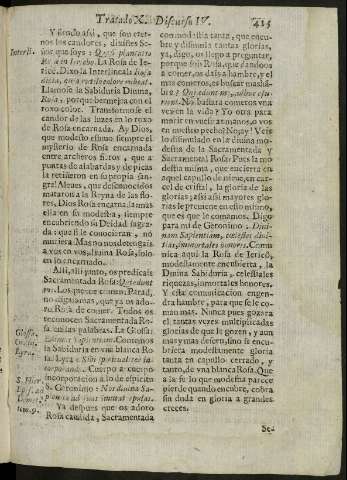 Tratado X. Discurso IV.
415
Y siendo assi, que son eter-
nos los candores, dixistes Se-
ñor que soys: Quasi plantatio
Rosæ in Iericho. La Rosa de Ie-
ricó. Dixo la Interlineal: Rosa
Llamose la Sabiduria Divina,
Rosa, porque bermejea con el
roxo color. Transformose el
candor de las luzes en lo rexo
de Rosa encarnada. Ay Dios,
que modesto estimo siempre el
mysterio de Rosa encarnada
entre archeros fieros, que a
puntas de alabardas y de picas
la retiñeron en su propia san-
gre! Aleues, que desconocidos
mataron a la Reyna de las flo-
res, Dios Rosa encarnada, mas
ella en su modestia, siempre
encubriendo su Deidad sagra-
da: que si le conocieran, no
muriera. Mas no nos detengais
a vos en vos, divina Rosa, solo
en lo encarnado.
Assi, assi junto, os predicais
Sacramentada Rosa: Qui edunt
me. Los que me comen. Parad,
no digais mas, que ya os ado-
ro Rosa de comer. Todos os
reconocen Sacramentada Ro-
sa en essas palabras. La Glossa:
Edamus Sapientiam. Comemos
la Sabiduria en vna blanca Ro-
sa: Lyra: Sibi spiritualiter in-
corporando. Cuerpo a cuerpo
incorporacion a lo de espiritu
S. Geronimo: Nos divina Sa-
pientia
Ya despues que os adoro
Rosa candida, Sacramentada
Interli.
Glossa,
Lyra.
S. Hier.
Epist. ad
Demet.
con modestia tanta, que encu-
bre y dissimula tantas glorias,
ya, digo, os llego a preguntar,
porque sois Rosa, que dandoos
a comer, os days a exhalar, y el
mas comeros, es buscar mas ha-
bre? Qui edunt me, adhuc esu-
rient. No bastara comeros vna
vez en la vida? Y otra para
morir en vuestras manos, o vos
en nuestro pecho? No ay! Veis
lo dissimulado en la divina mo-
destia de la Sacramentada y
Sacramental Rosa: Pues la mo-
destia misma, que encierra en
aquel capullo de nieue, en car-
cel de cristal, la gloria de las
glorias; assi assi mayores glo-
rias se preuiene en esso mismo,
que es que le comamos. Digo
para mi de Geronimo: Divi-
nam Sapientiam, cælestes divi-
tias, inmortales honores. Comu-
nica aqui la Rosa de Iericó,
modestamente encubierta, la
Divina Sabiduria, celestiales
riquezas, inmortales honores.
Y esta comunicacion engen-
dra hambre, para que se le co-
man mas. Nunca pues gozara
el tantas vezes multiplicadas
glorias de que le gozen, y aun
mas y mas deseen, sino se encu-
briera modestamente gloria
tanta en capullo cerrado, y
tanto, de vna blanca Rosa. Que
a la fe lo que modestia parece
pierde quando encubre, cobra
sin duda en gloria a grandes
creces.
Se-